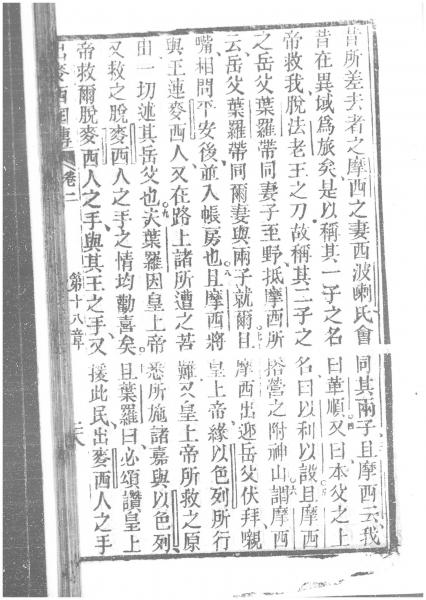 昔所差去者之摩西之妻西波喇氏會同其兩子且摩西云我
昔在異域為旅矣是以稱其一子之名曰革順又曰本父之上
帝救我脫法老王之刀故稱其二子之名曰以利以設且摩西
之岳父葉羅帶同妻子至野抵摩西所搭營之附神山謂摩西
云岳父葉羅帶同爾妻與兩子就爾且摩西出迎岳父伏拜嚫
嘴相問平安後並入帳房也且摩西將皇上帝緣以色列所行
與王連麥西人又在路上諸所遭之苦難又皇上帝所救之原
由一切述其岳父也夫葉羅因皇上帝悉所施諸嘉與以色列
又救之脫麥西人之手之情均勸喜矣且葉羅曰必頌讚皇上
帝救爾脫麥西人之手與其王之手又援此民出麥西人之手
出麥西國傳 卷二 第十八章